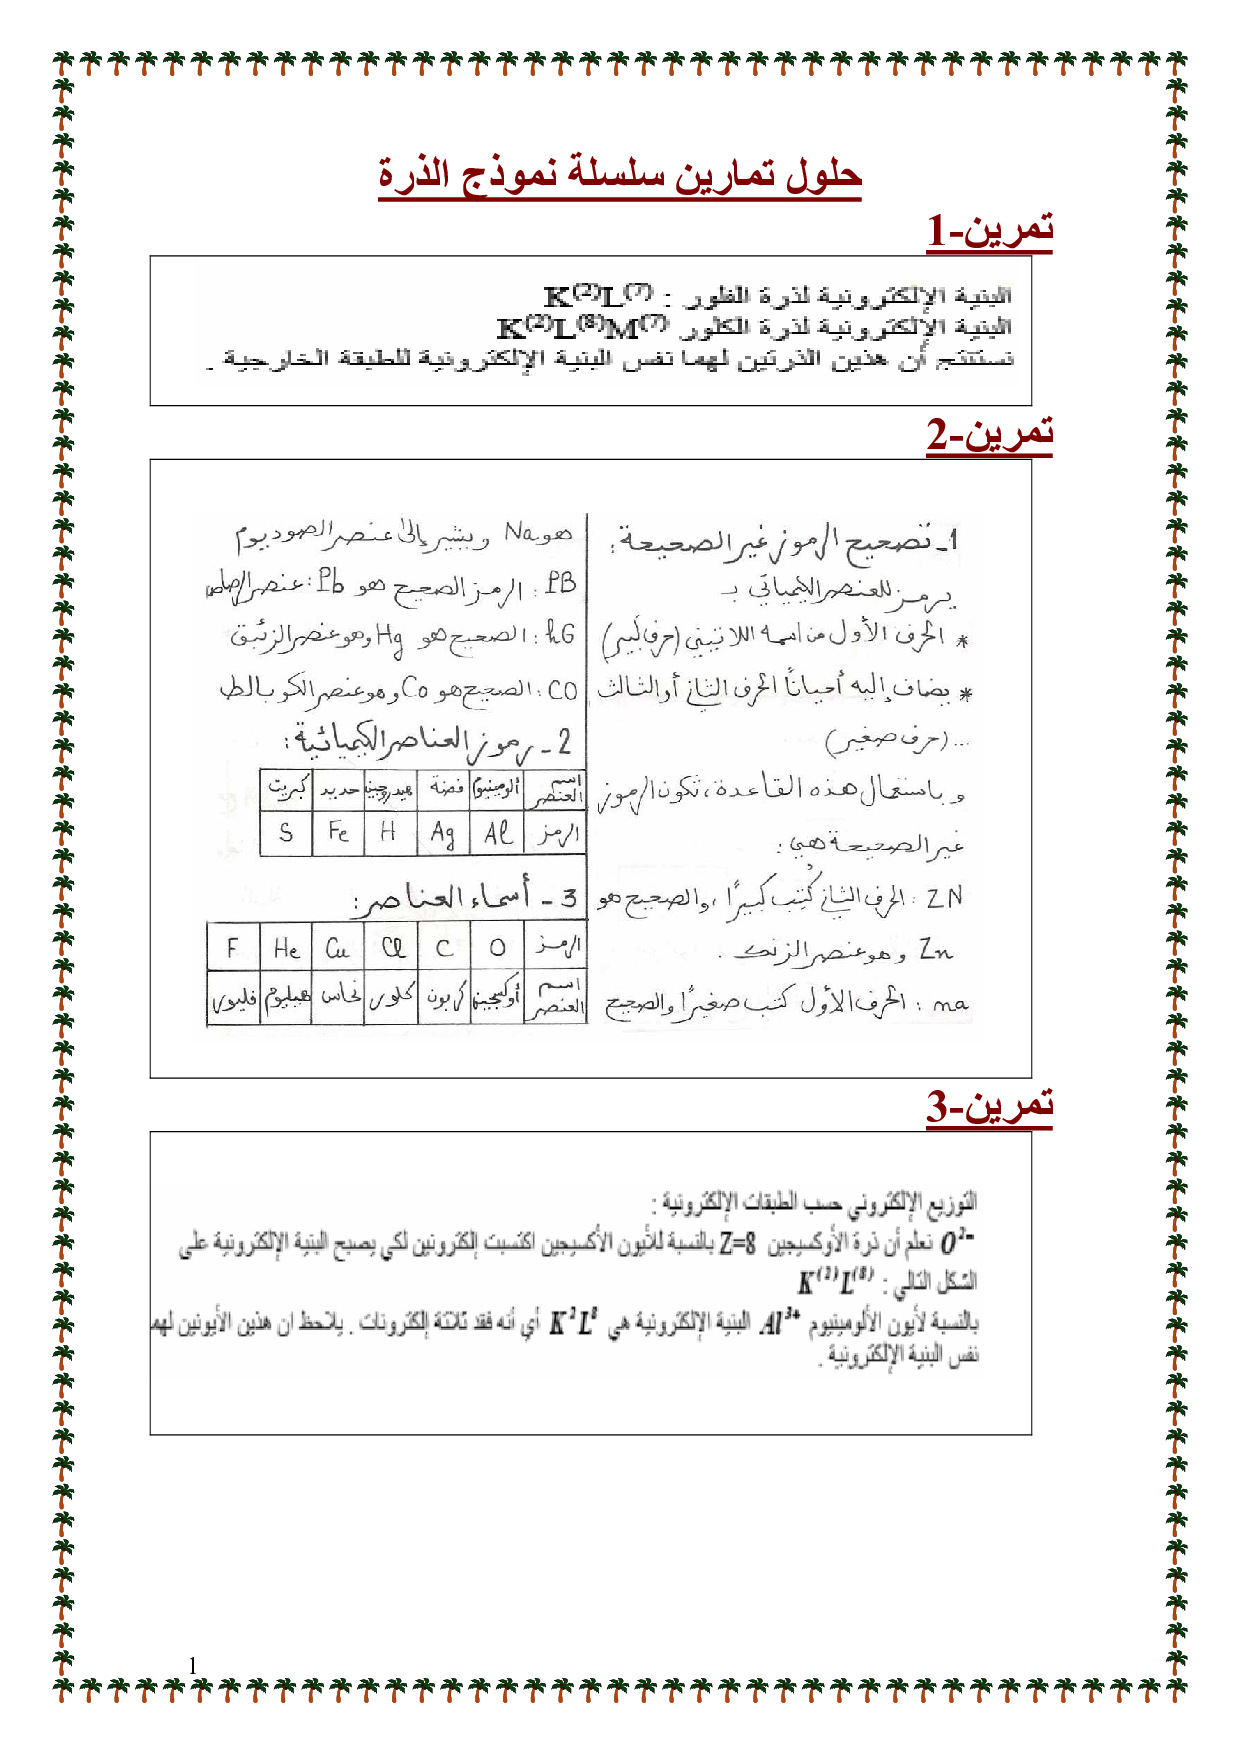 حلول تمارين سلسلة نموذج الذرة
تمرين-1
البنية الإلكترونية لذرة الفلور : K(2)L(7)
البنية الإلكترونية لذرة الكلور K(2)L(8)M(7)
نستنتج أن هذين الذرتين لهما نفس البنية الإلكترونية للطبقة الخارجية .
تمرين-2
1- تصحيح الرموز غير الصحيحة :
يرمز للعنصر الكيميائي بـ
* الحرف الأول من اسمه اللاتيني (حرف كبير)
* يضاف إليه أحيانًا الحرف الثاني أو الثالث
... (حرف صغير)
و باستعمال هذه القاعدة، تكون الرموز
غير الصحيحة هي :
ZN : الحرف الثاني كُتِب كبيرًا ، والصحيح هو
Zn وهو عنصر الزنك .
ma : الحرف الأول كتب صغيرًا والصحيح
هو Na ويشير إلى عنصر الصوديوم
PB : الرمز الصحيح هو Pb : عنصر الرصاص
hG : الصحيح هو Hg وهو عنصر الزئبق
CO : الصحيح هو Co وهو عنصر الكوبالط
2- رموز العناصر الكيميائية :
اسم العنصر ألومنيوم فضة هيدروجين حديد كبريت
الرمز Al Ag H Fe S
3- أسماء العناصر :
الرمز O C Cl Cu He F
اسم العنصر أوكسجين كربون كلور نحاس هيليوم فليور
تمرين-3
التوزيع الإلكتروني حسب الطبقات الإلكترونية :
O2- نعلم أن ذرة الأوكسيجين Z=8 بالنسبة للأيون الأكسيجين اكتسبت إلكترونين لكي يصبح البنية الإلكترونية على
الشكل التالي : K(2)L(8)
بالنسبة لأيون الألومينيوم Al3+ البنية الإلكترونية هي K2L8 أي أنه فقد ثلاثة إلكترونات . يلاحظ ان هذين الأيونين لهما
نفس البنية الإلكترونية .
1